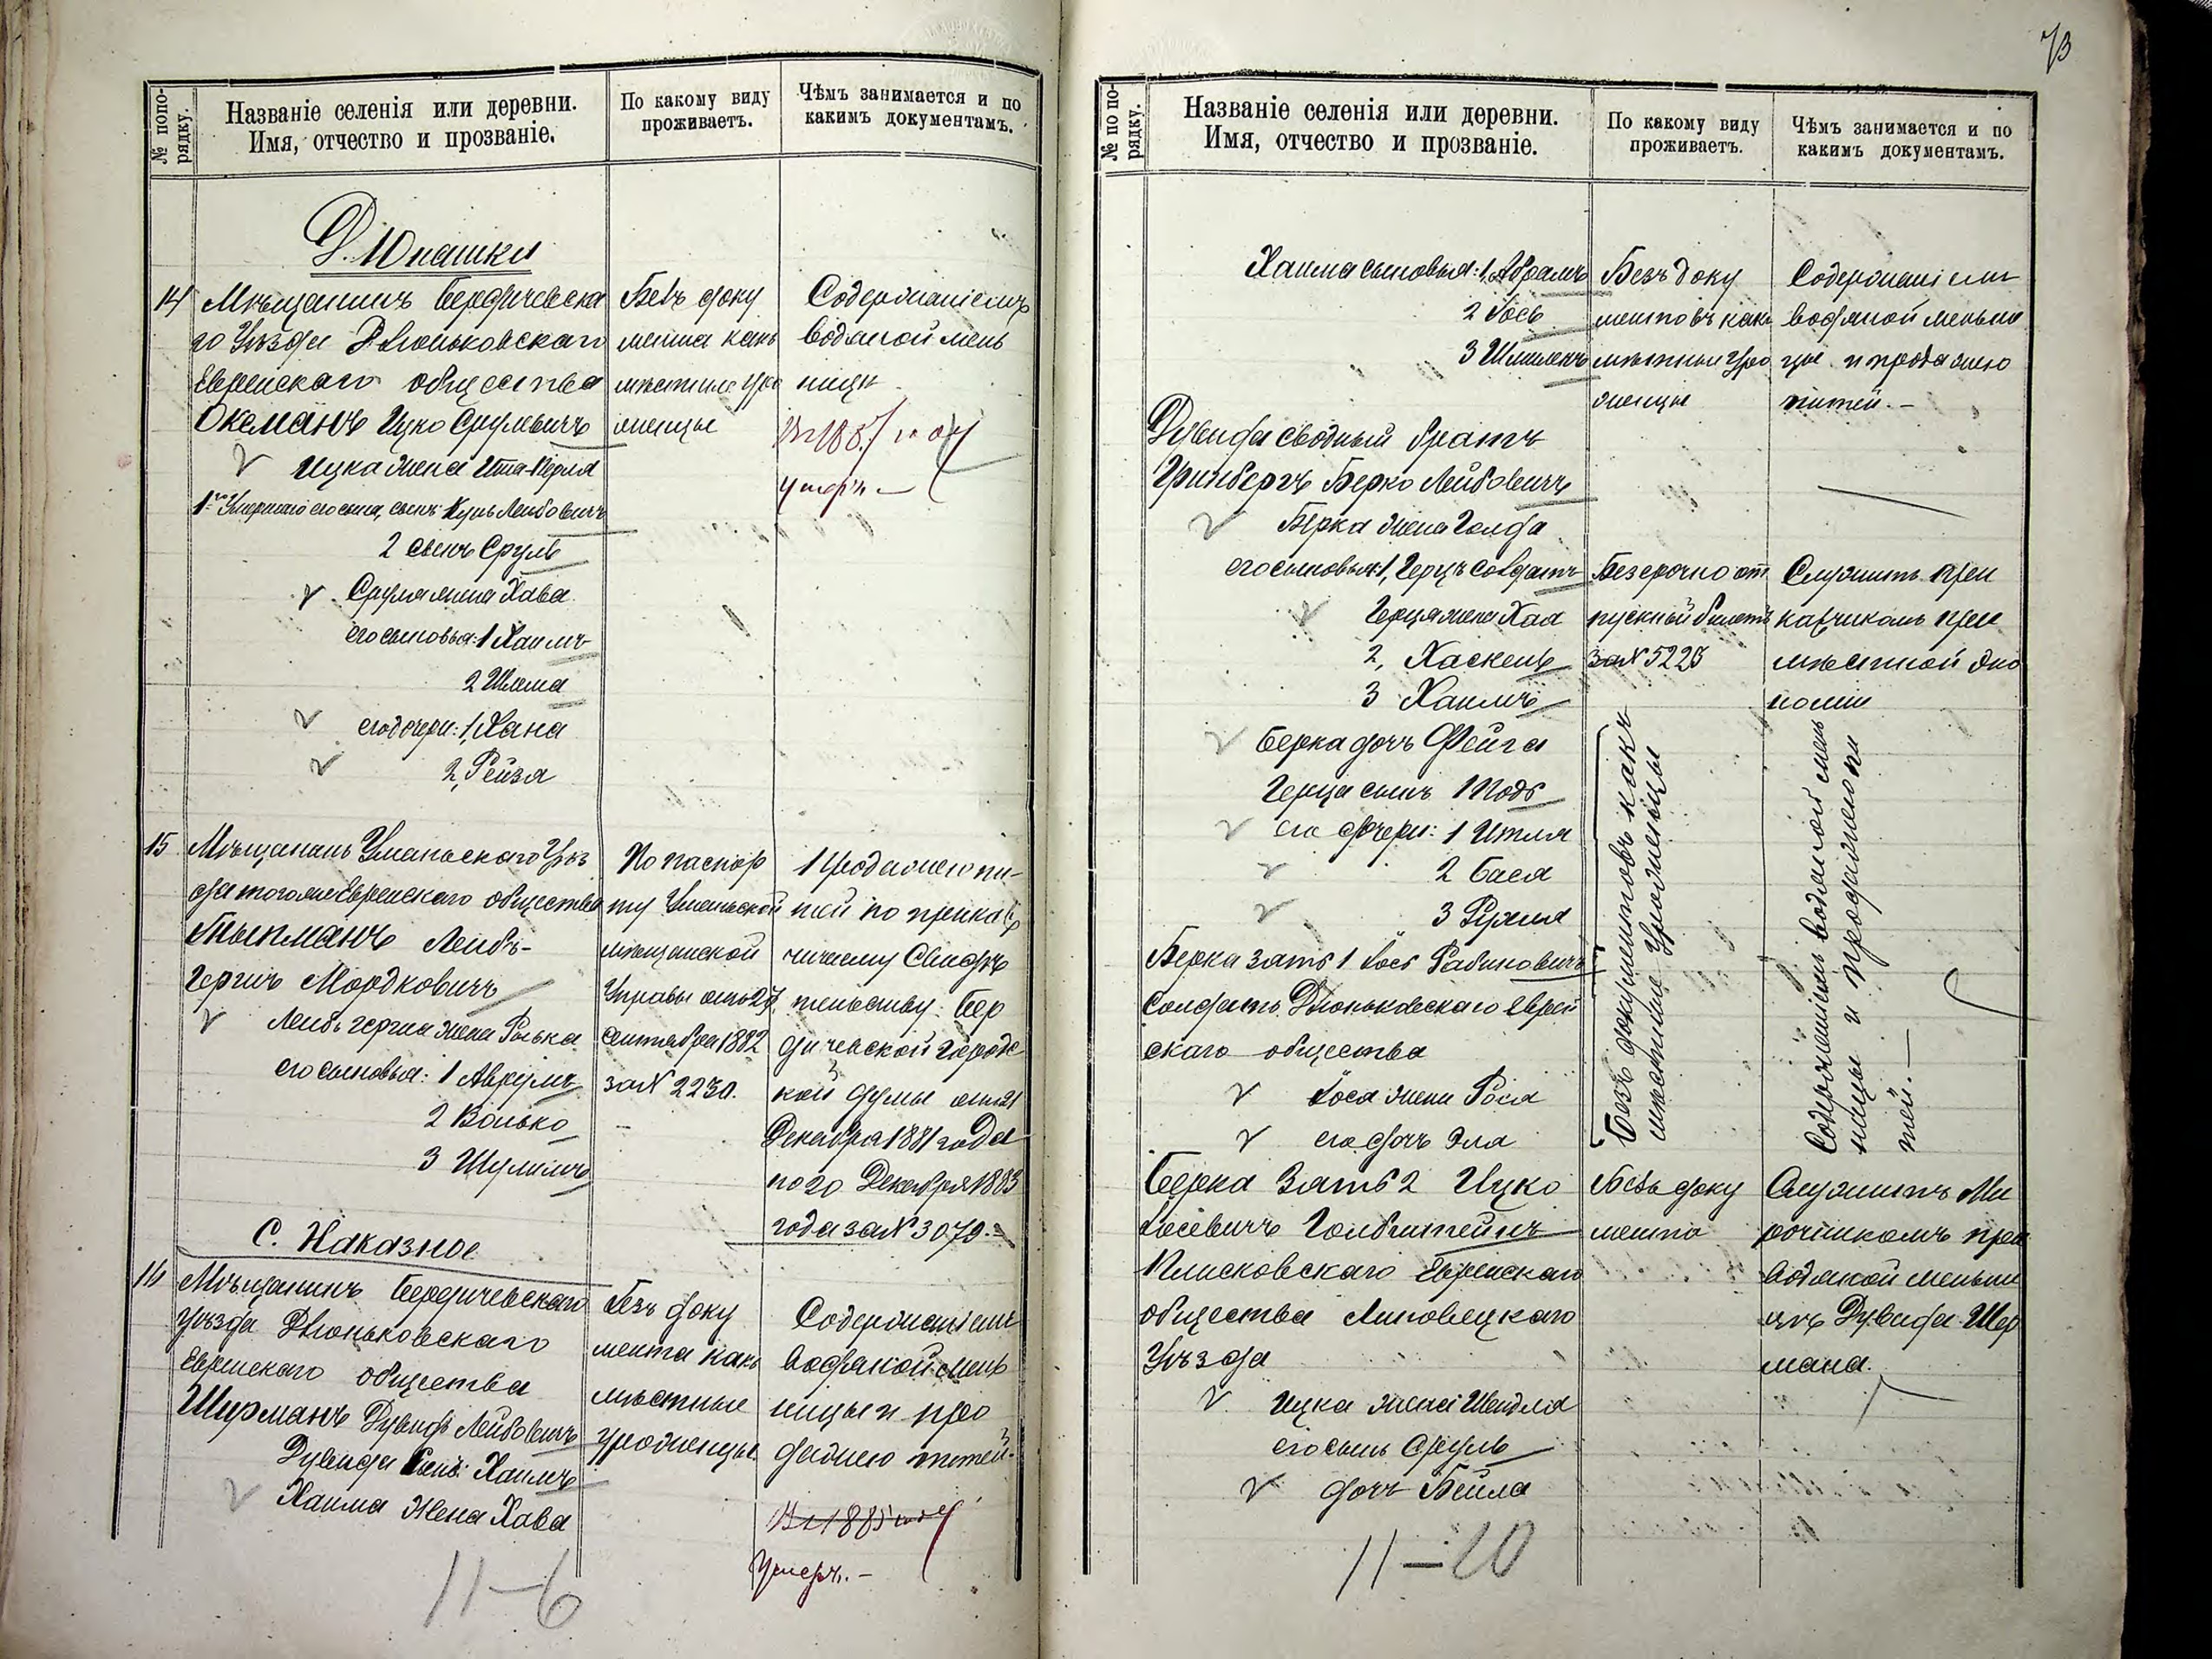 73
№ по по-
рядку.
Названіе селенія или деревни.
Имя, отчество и прозваніе.
По какому виду
проживаетъ.
Чѣмъ занимается и по
какимъ документамъ.
Д. Юнашки
14 Мѣщанинъ Бердичевска
го Уѣзда Дзюньковскаго
Еврейскаго общества
Оксманъ Ицко Срулевичъ
Ицка жена Ита-Перля
1го Умершаго его сына, сынъ Куны Лейбовичъ
2 сынъ Сруль
Сруля жена Хава
его сыновья: 1 Хаимъ
2 Шлема
его дочери: 1, Хана
2, Рейзя
Безъ доку
мента какъ
мѣстные уро
женцы
Содержаніемъ
водяной мель
ницы
Въ 1885 году
умеръ. —
15 Мѣщанинъ Уманьскаго Уѣз
да того же Еврейскаго общества
Лейбъ-
Гершъ Мордковичъ
Лейбъ Герша жена Рывка
его сыновья: 1 Аврумъ
2 Волько
3 Шулимъ
По паспор
ту Уманьской
мѣщанской
Управы отъ 27
сентября 1882
за № 2230.
1 Продажею пи-
тей по прика
чичьему Свидѣ
тельству Бер
дичевской Городс
кой думы отъ 21
Декабря 1881 года
по 20 Декабря 1883
года за № 3079. —
С. Наказное
16 Мѣщанинъ Бердичевскаго
уѣзда Дзюньковскаго
Еврейскаго общества
Ширманъ Дувидъ Лейбовичъ
Дувида сынъ: Хаимъ
Хаима жена Хава
Безъ доку
мента какъ
мѣстные
уроженцы.
Содержаніемъ
водяной мель
ницы и про
дажею питей.
Въ 1885 году
умеръ. —
11–6
№ по по-
рядку.
Названіе селенія или деревни.
Имя, отчество и прозваніе.
По какому виду
проживаетъ.
Чѣмъ занимается и по
какимъ документамъ.
Хаима сыновья: 1, Абрамъ
2 Іось
3 Шмилекъ
Безъ доку
ментовъ какъ
мѣстные уро
женцы
Содержаніемъ
водяной мельни
цы и продажею
питей. —
Дувида сводный братъ
Гринбергъ Берко Лейбовичъ
Берка жена Голда
его сыновья: 1, Герцъ солдатъ
Герца жена Хая
2, Хаскель
3 Хаимъ
Безсрочно от
пускный билетъ
за № 5225
Служитъ при
качикомъ при
мѣстной эко
номіи
Берка дочь Фейга
Герца сынъ 1 Тодъ
его дочери: 1 Итля
2 Бася
3 Рухля
Берка зять 1 Іось Рабиновичъ
Солдатъ Дзюньковскаго Еврей
скаго общества
Іося жена Рося
его дочь Эла
Безъ документовъ какъ
мѣстные Уроженцы
Содержаніемъ водяной мель
ницы и продажею пи
тей. —
Берка Зять 2 Ицко
Іосевичъ Голдштейнъ
Плисковскаго Еврейскаго
общества Липовецкаго
Уѣзда
Ицка жена Шейдля
его сынъ Сруль
дочь Бейла
Безъ доку
мента
Служитъ Ми
рочникомъ при
водяной мельни
цѣ Дувида Шер
мана.
11–10